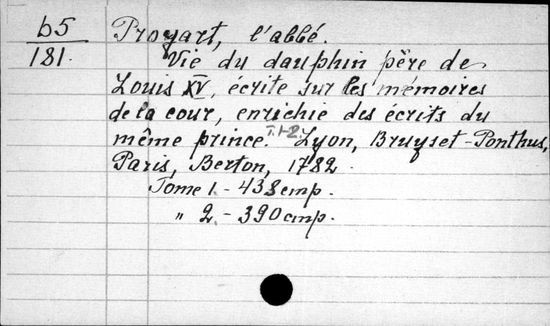 b5
181.
Proyart, l'abbé.
Vie du dauphin père de
Louis XV, écrite sur les mémoires
de la cour, enrichie des écrits du
même prince. T.1-2. Lyon, Bruyset-Ponthus,
Paris, Berton, 1782.
Tome 1. - 438 стр.
" 2. - 390 стр.